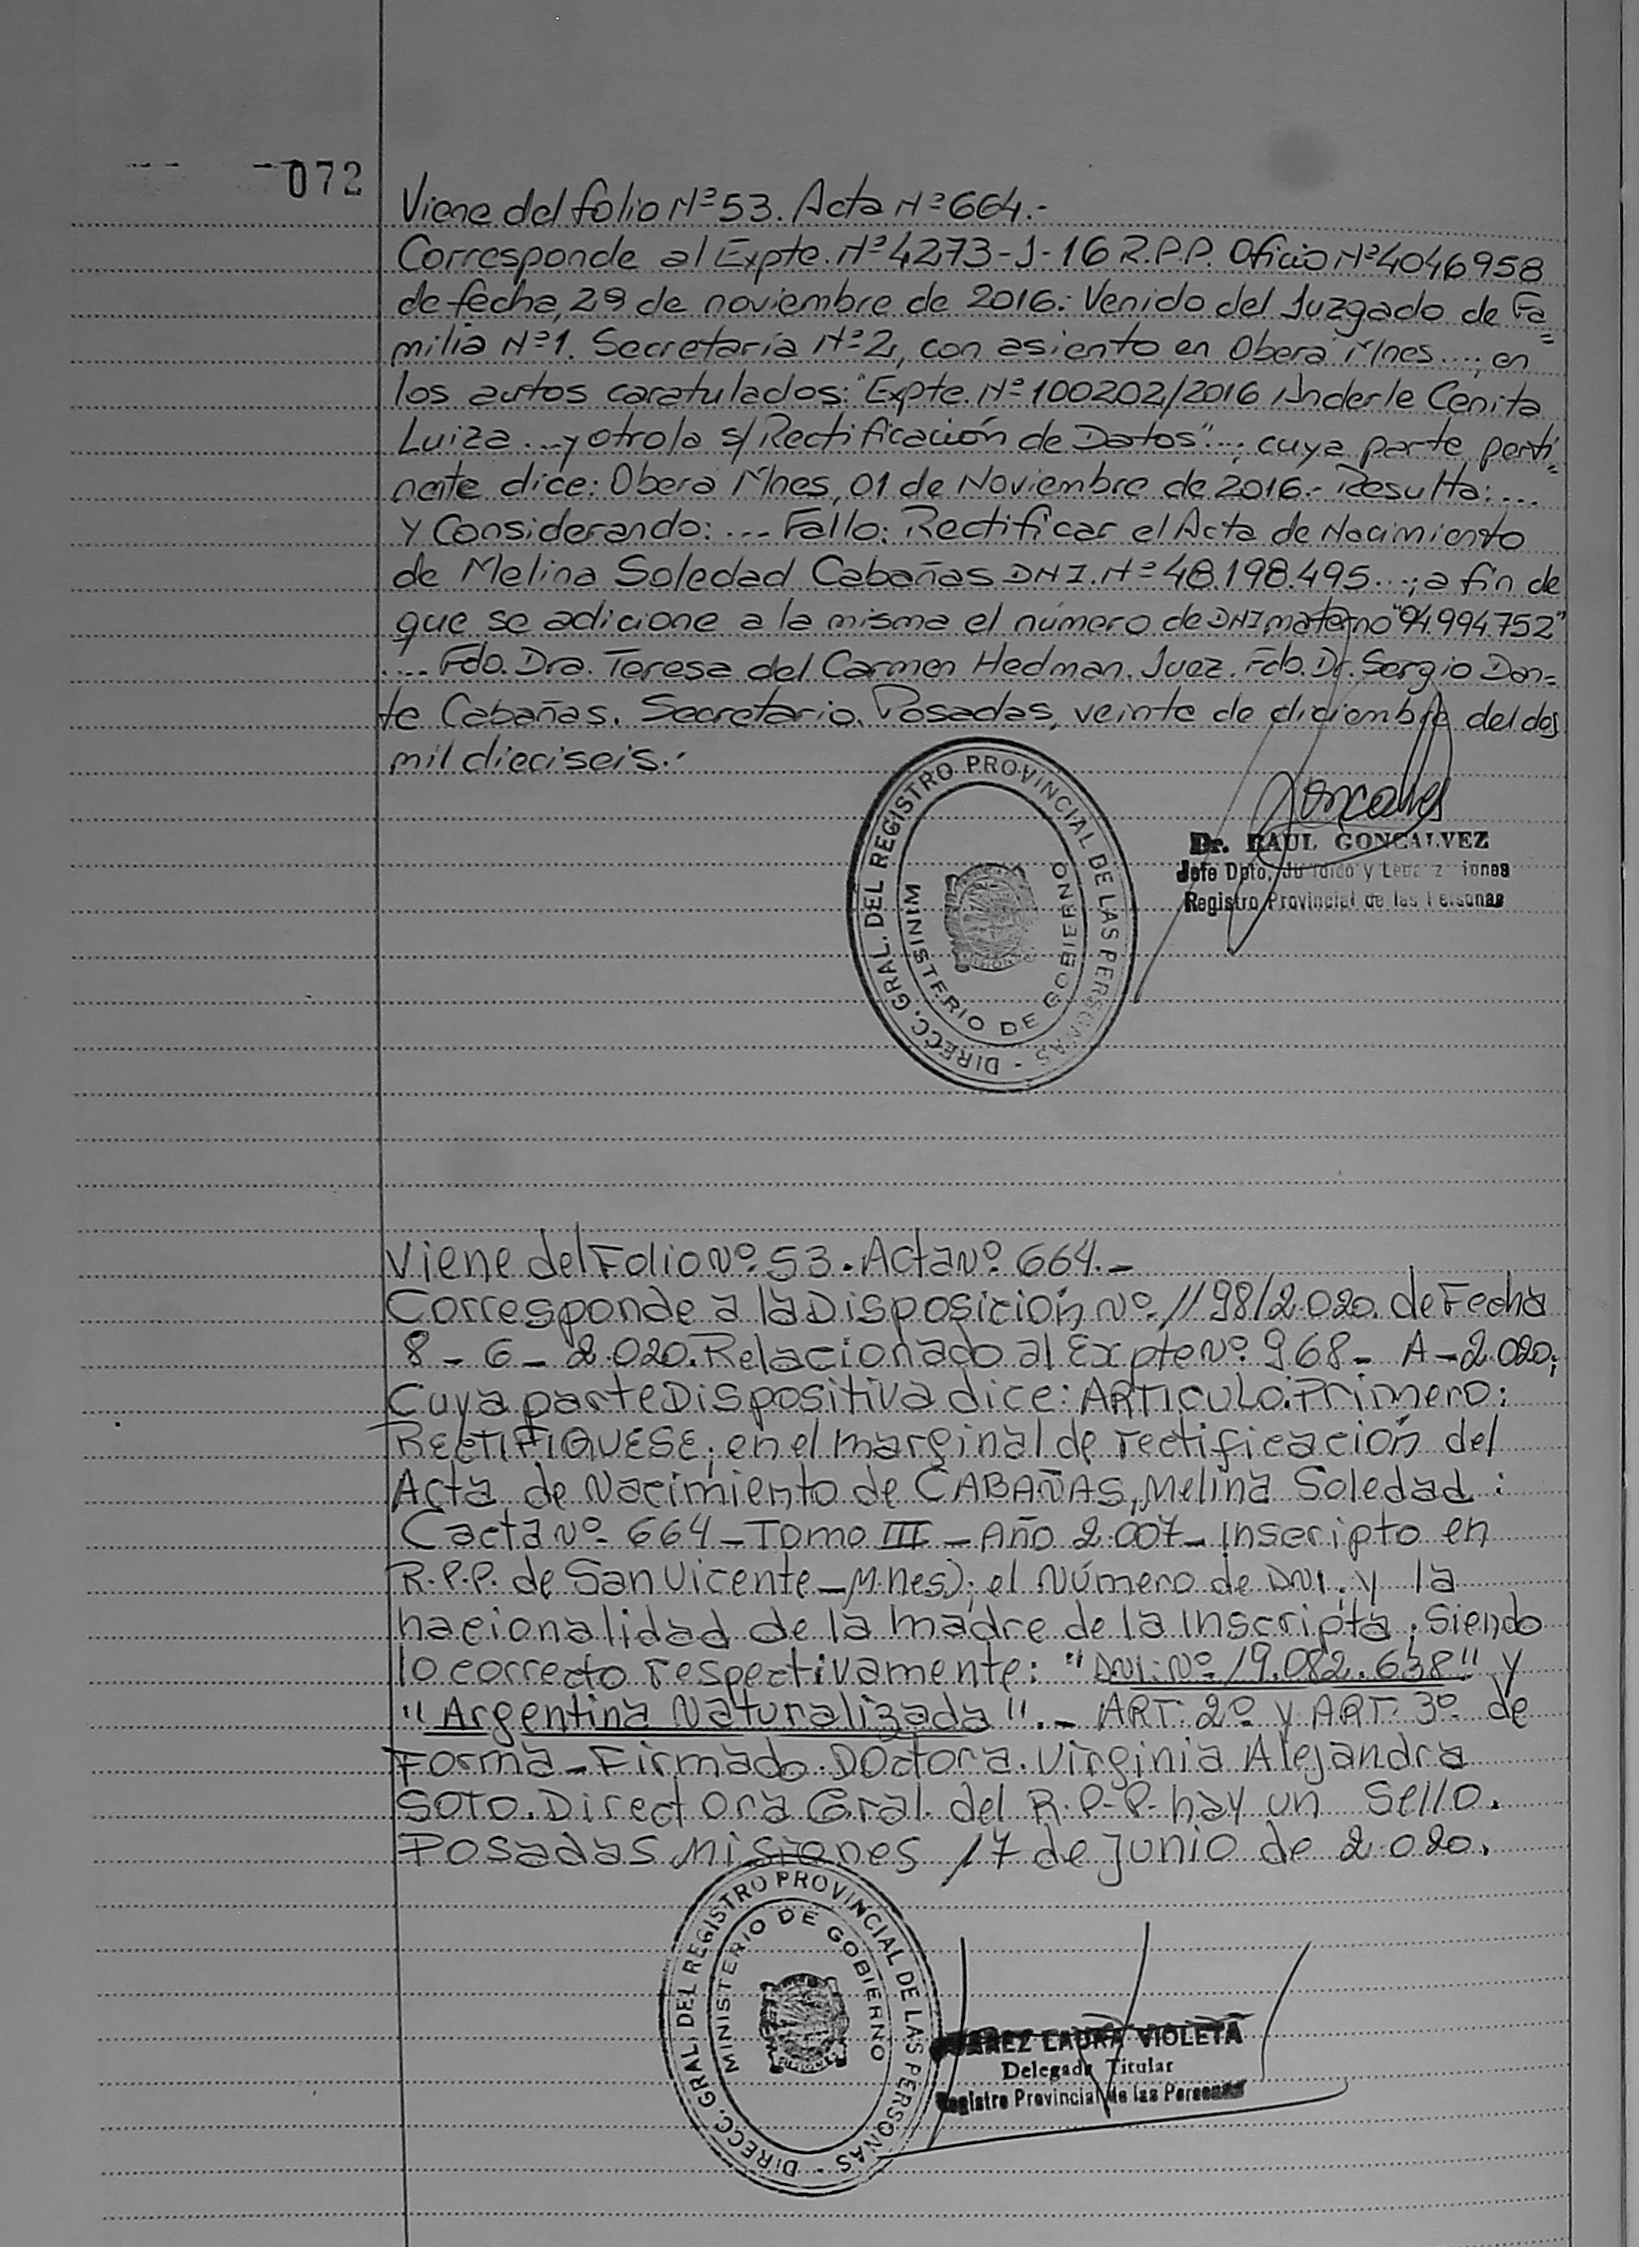 072
Viene del folio Nº 53. Acta Nº 664.-
Corresponde al Expte. Nº 4273-J-16 R.P.P. Oficio Nº 4046958
de fecha, 29 de noviembre de 2016. Venido del Juzgado de Fa=
milia Nº 1. Secretaría Nº 2, con asiento en Oberá Mnes...; en
los autos caratulados: "Expte. Nº 100202/2016 Anderle Cenita
Luiza....y otro/a s/ Rectificación de Datos"...; cuya parte perti=
nente dice: Oberá Mnes, 01 de Noviembre de 2016.- Resulta:....
y Considerando: .... Fallo: Rectificar el Acta de Nacimiento
de Melina Soledad Cabañas DNI. Nº 48.198.495...; a fin de
que se adicione a la misma el número de DNI materno "94.994.752"
.... Fdo. Dra. Teresa del Carmen Hedman. Juez. Fdo. Dr. Sergio Dan=
te Cabañas. Secretario. Posadas, veinte de diciembre del dos
mil dieciseis.-
DIRECC. GRAL. DEL REGISTRO PROVINCIAL DE LAS PERSONAS -
MINISTERIO DE GOBIERNO
MISIONES
Dr. RAUL GONCALVEZ
Jefe Dpto, Jurídico y
Registro Provincial de las Personas
Viene del Folio Nº 53. Acta Nº 664.-
Corresponde a la Disposición Nº 1198/2.020. de Fecha
8 - 6 - 2.020. Relacionado al Expte Nº 968- A-2.020;
Cuya parte Dispositiva dice: ARTICULO Primero:
RECTIFIQUESE; en el marginal de rectificación del
Acta de Nacimiento de CABAÑAS, Melina Soledad:
(acta Nº 664-Tomo III - Año 2.007- Inscripto en
R.P.P. de San Vicente - M.nes); el Número de DNI. y la
nacionalidad de la madre de la Inscripta; siendo
lo correcto respectivamente: "DNI: Nº 19.082.638" y
"Argentina Naturalizada".- ART: 2º y ART: 3º de
Forma - Firmado. Doctora. Virginia Alejandra
SOTO. Directora Gral. del R.P.P- hay un Sello.
Posadas Misiones 17 de junio de 2.020.
DIRECC. GRAL. DEL REGISTRO PROVINCIAL DE LAS PERSONAS -
MINISTERIO DE GOBIERNO
MISIONES
LAURA VIOLETA
Delegada Titular
Registro Provincial de las Personas